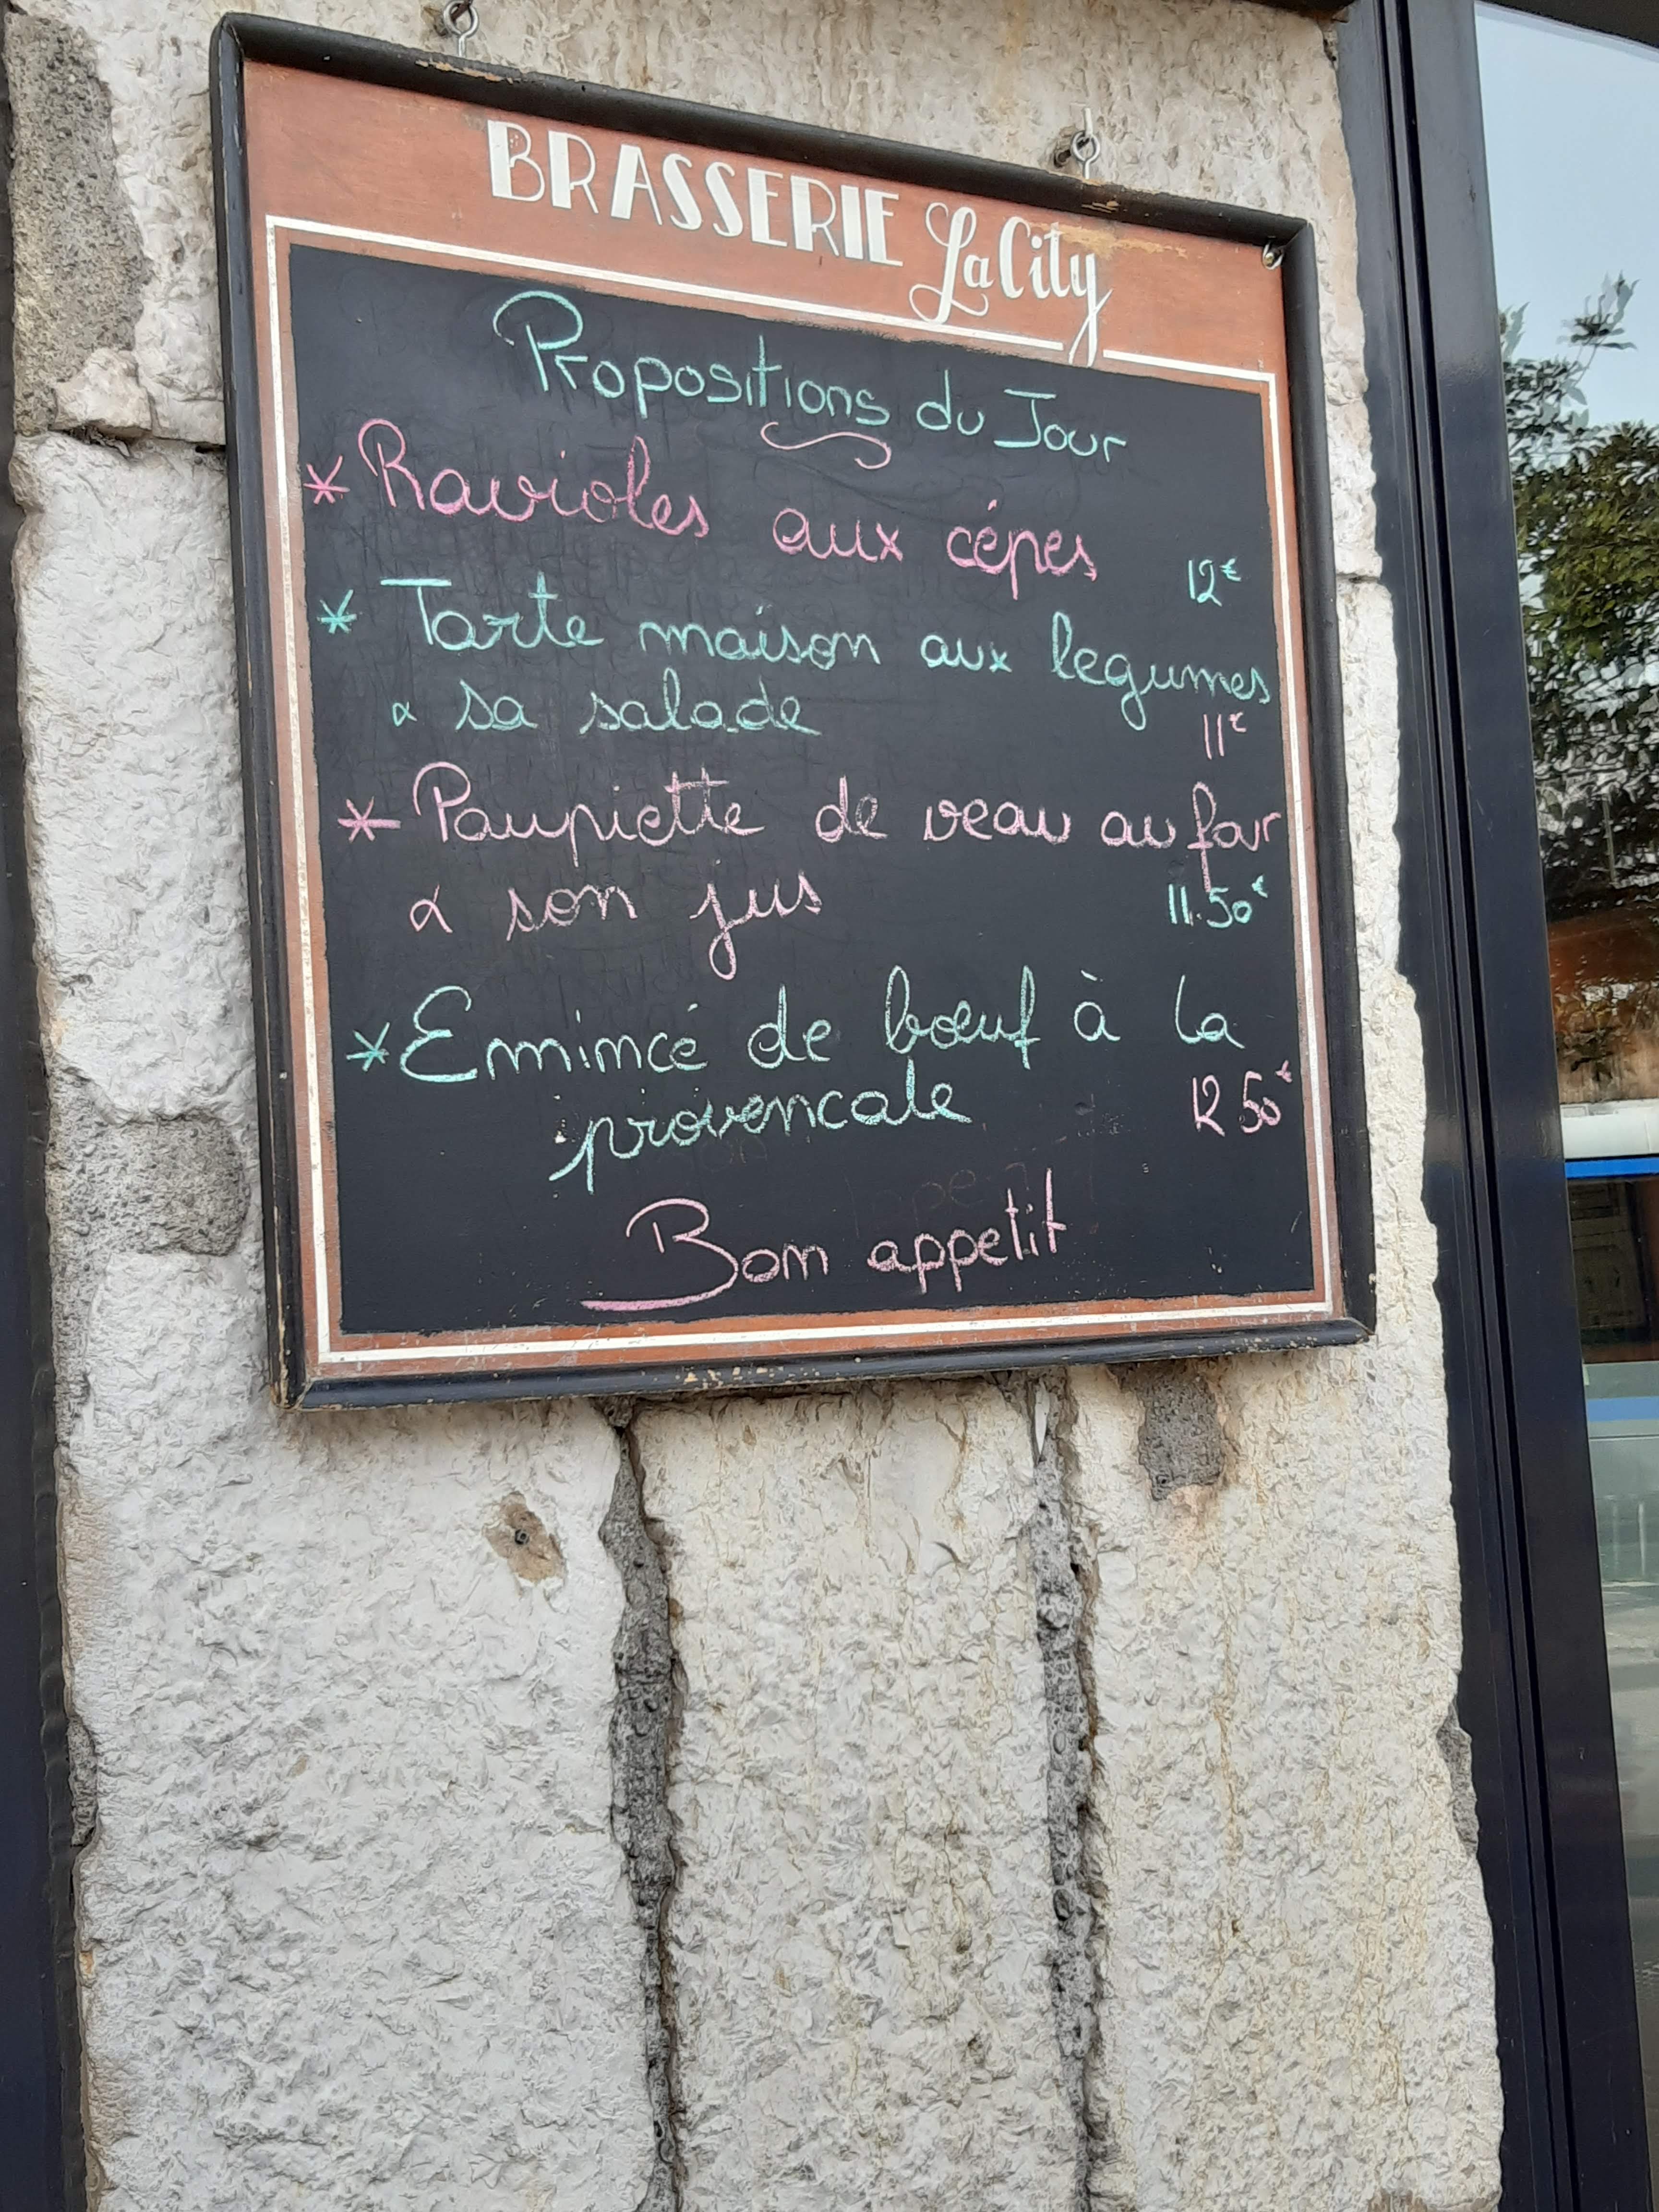 BRASSERIE La City
Propositions du Jour
* Ravioles aux cépes
12€
* Tarte maison aux legumes
& sa salade
11€
* Paupiette de veau au four
& son jus
11.50€
* Emincé de bœuf à la
provencale
12 50€
Bon appetit